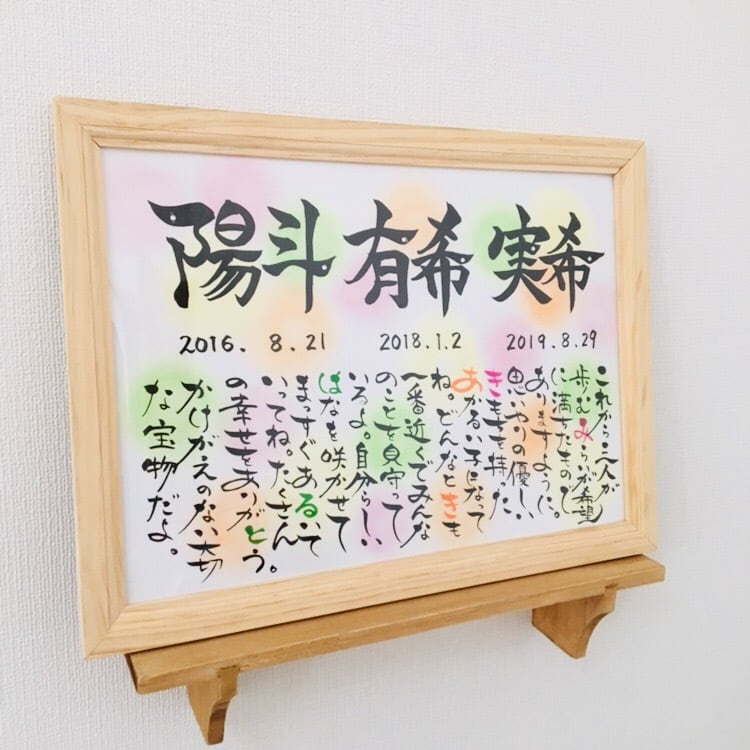 陽斗 有希 実希
2016. 8.21 2018.1.2 2019.8.29
これから三人が
歩むみらいが希望
に満ちたもので
ありますように。
思いやりの優しい
きもちを持った
あかるい子になって
ね。どんなときも
一番近くでみんな
のことを見守って
いるよ。自分らしい
はなを咲かせて
まっすぐあるいて
いってね。たくさん
の幸せをありがとう。
かけがえのない大切
な宝物だよ。